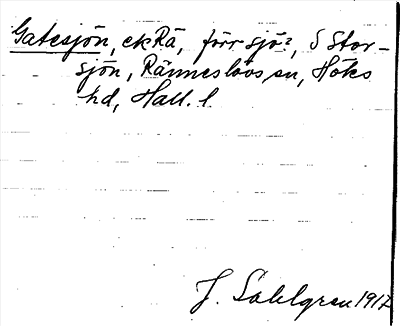 Gatesjön, ek Rä, förr sjö?, S Stor-
sjön, Ränneslövs sn, Höks
hd, Hall. l.
J. Sahlgren 1917